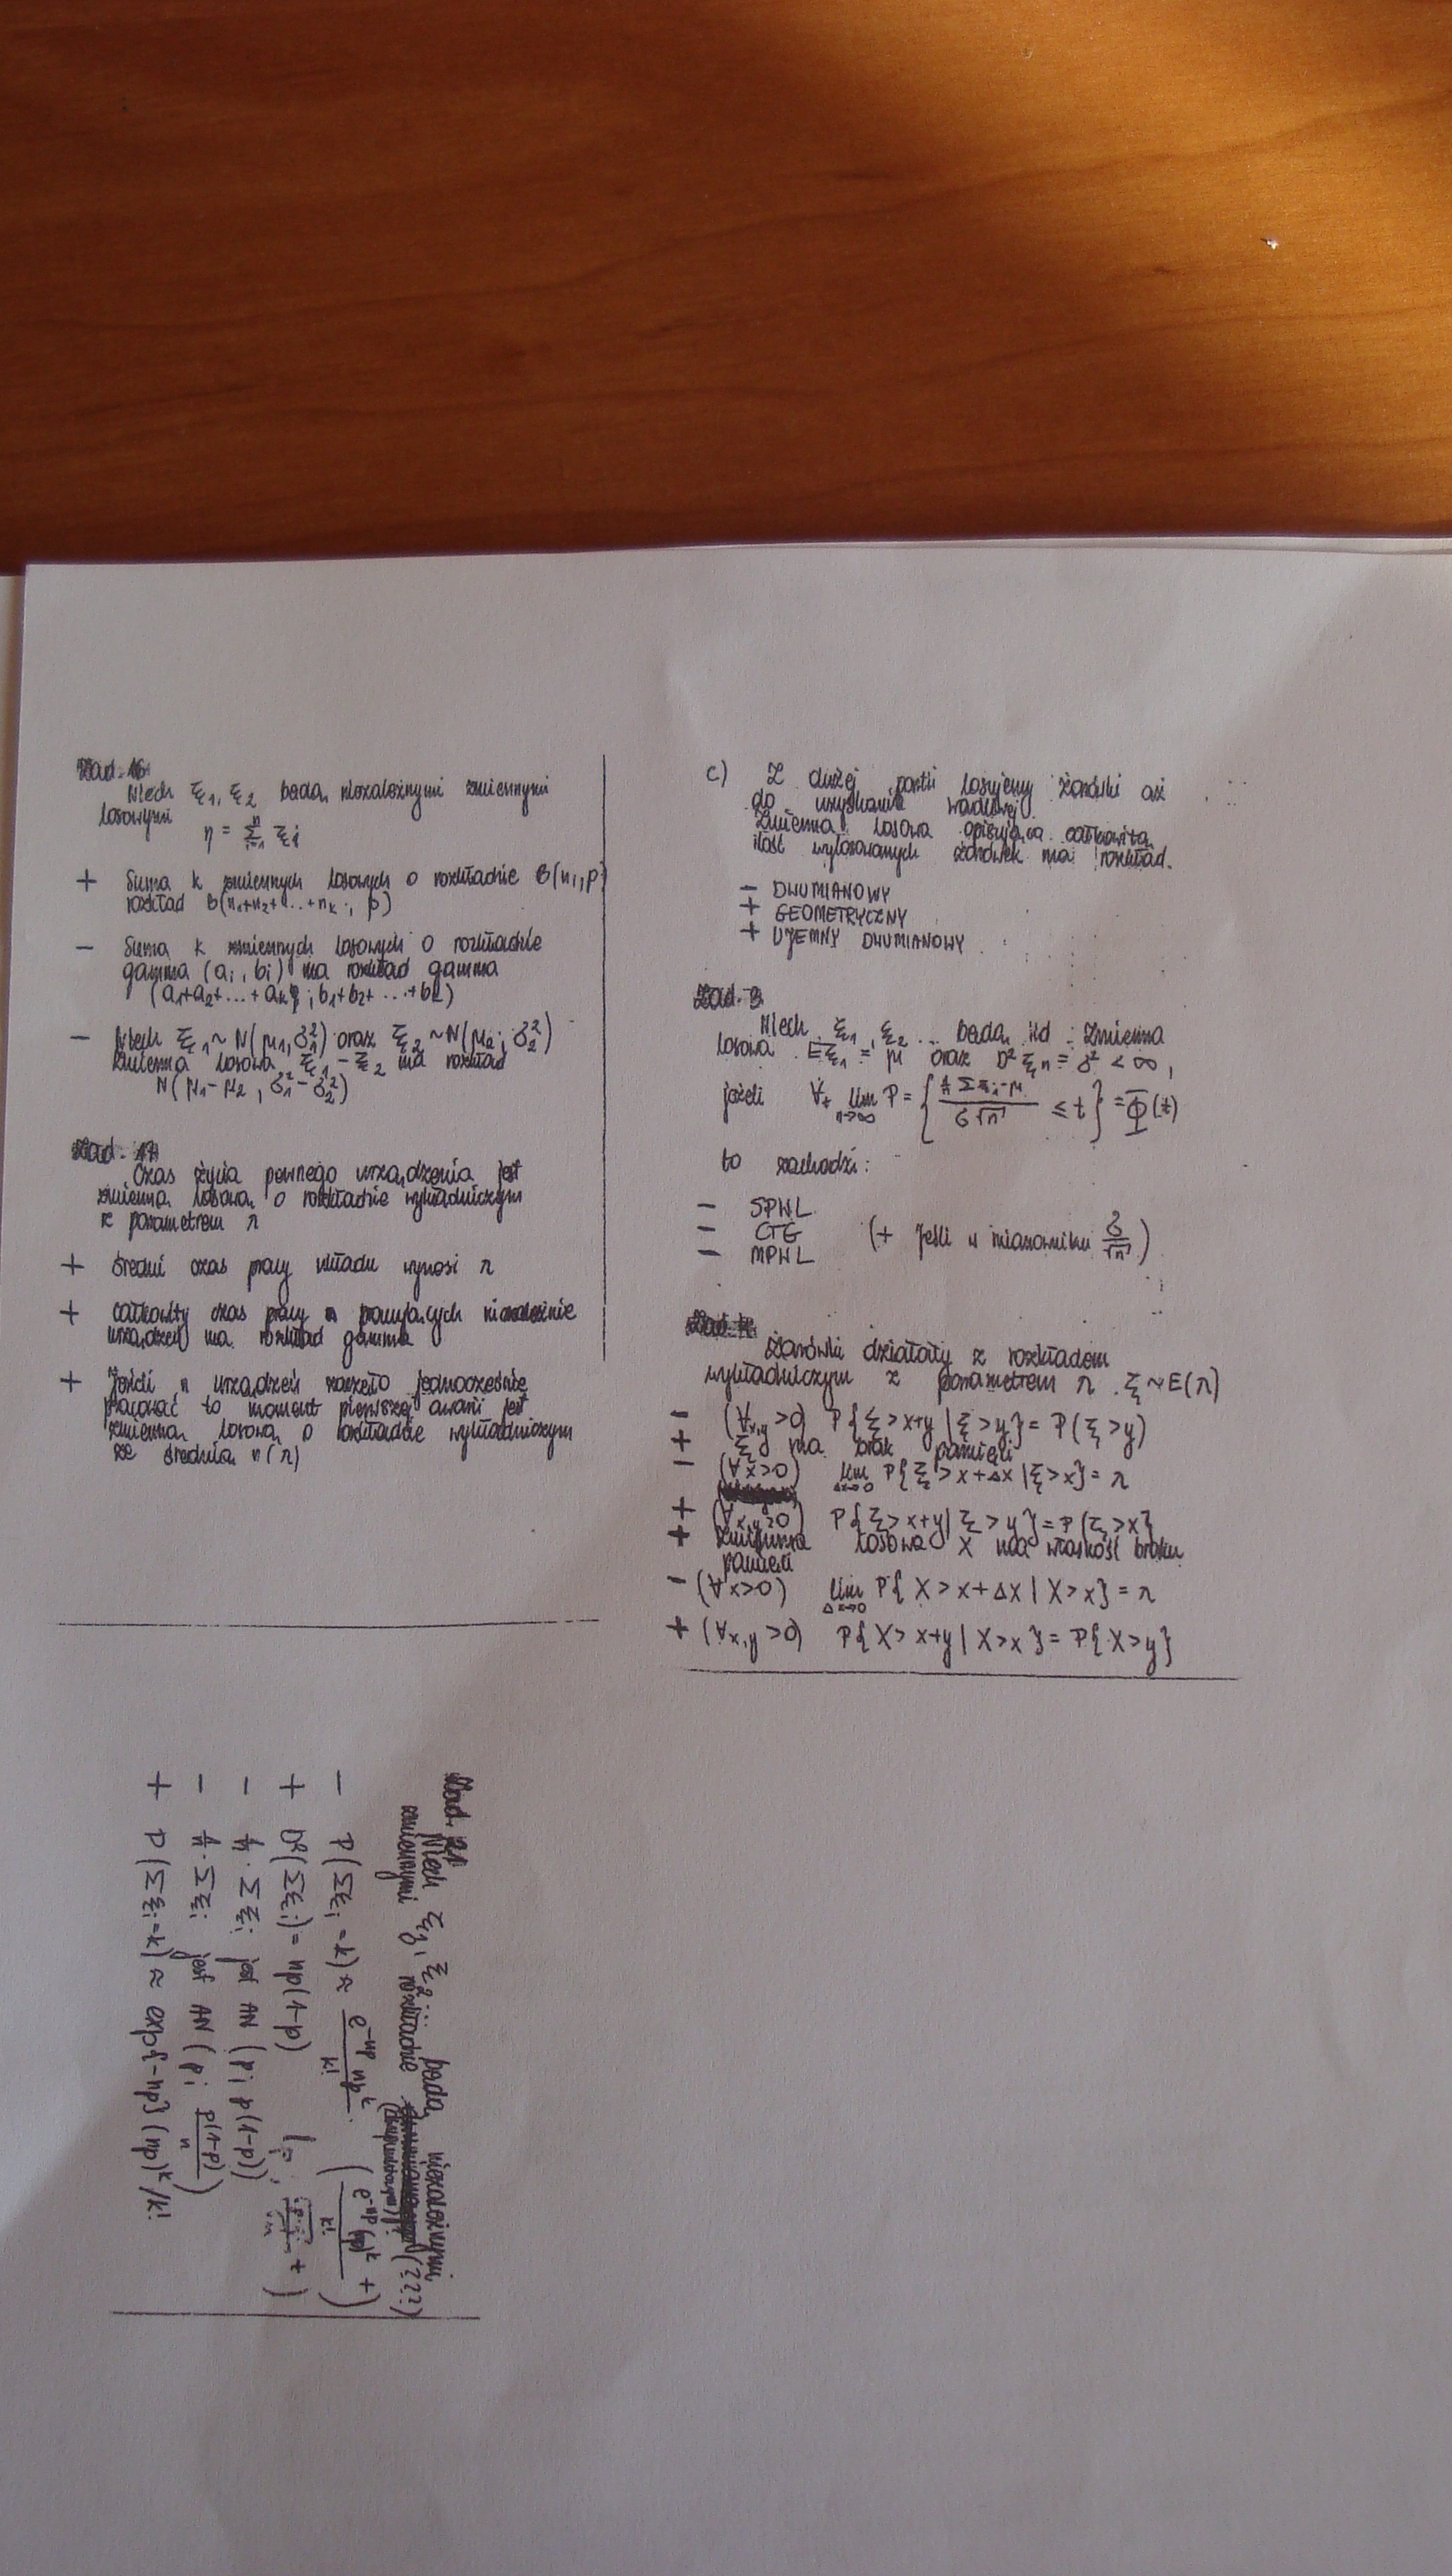 Zad. 16
Niech ξ1, ξ2 będą niezależnymi zmiennymi
losowymi
η = Σ ξi
+ Suma k zmiennych losowych o rozkładzie B(ni, p)
rozkład B(n1+n2+...+nk ; p)
- Suma k zmiennych losowych o rozkładzie
gamma (ai, bi) ma rozkład gamma
(a1+a2+...+ak ; b1+b2+...+bk)
- Niech ξ1 ~ N(μ1, σ1²) oraz ξ2 ~ N(μ2 ; σ2²)
zmienna losowa ξ1 - ξ2 ma rozkład
N(μ1 - μ2 , σ1² - σ2²)
Zad. 17
Czas życia pewnego urządzenia jest
zmienną losową o rozkładzie wykładniczym
z parametrem λ
+ średni czas pracy układu wynosi λ
+ całkowity czas pracy n pracujących niezależnie
urządzeń ma rozkład gamma
+ Jeżeli n urządzeń zaczęło jednocześnie
pracować to moment pierwszej awarii jest
zmienną losową o rozkładzie wykładniczym
ze średnią n(λ)
c) Z dużej partii losujemy żarówki aż
do uzyskania wadliwej.
Zmienna losowa opisująca całkowitą
ilość wylosowanych żarówek ma rozkład.
- DWUMIANOWY
+ GEOMETRYCZNY
+ UJEMNY DWUMIANOWY
Zad. 3
Niech ξ1, ξ2 ... będą iid. Zmienna
losowa Eξ1 = μ oraz D²ξn = σ² < ∞,
jeżeli ∀t lim n→∞ P = { (1/n Σξi - μ) / (σ√n) ≤ t } = Φ(t)
to zachodzi:
- SPWL
- CTG (+ Jeśli w mianowniku σ/√n)
- MPWL
Żarówki działały z rozkładem
wykładniczym z parametrem λ. ξ ~ E(λ)
- (∀x,y >0) P{ξ > x+y | ξ > y} = P(ξ > y)
+ ξ ma brak pamięci
- (∀x>0) lim Δx→0 P{ξ > x+Δx | ξ > x} = λ
+ (∀x,y ≥0) P{ξ > x+y | ξ > y} = P{ξ > x}
+ zmienna losowa X ma własność braku
pamięci
- (∀x>0) lim Δx→0 P{X > x+Δx | X > x} = λ
+ (∀x,y >0) P{X > x+y | X > x} = P{X > y}
Zad. 21
Niech ξ1, ξ2... będą niezależnymi,
zmiennymi rozkładzie (???)
- P(Σξi = k) ≈ e^-np np^k / k! (e^-np (np)^k / k! +)
+ D²(Σξi) = np(1-p)
- 1/n · Σξi jest AN (p; p(1-p))
- 1/n · Σξi jest AN (p; p(1-p)/n)
+ P(Σξi = k) ≈ exp{-np} (np)^k/k!